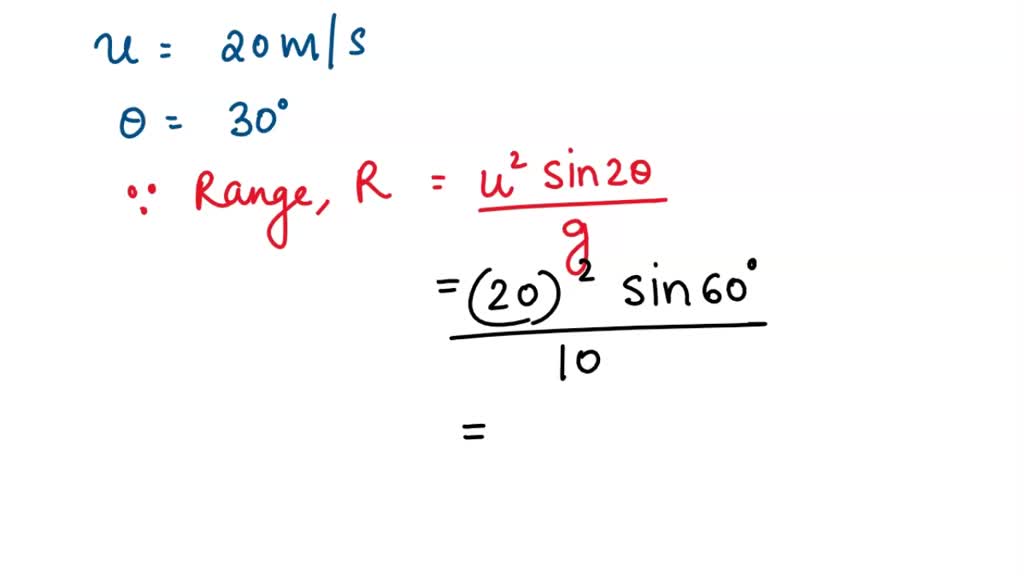 u = 20 m/s
θ = 30°
∵ Range, R = u² sin2θ
g
= (20)² sin60°
10
=